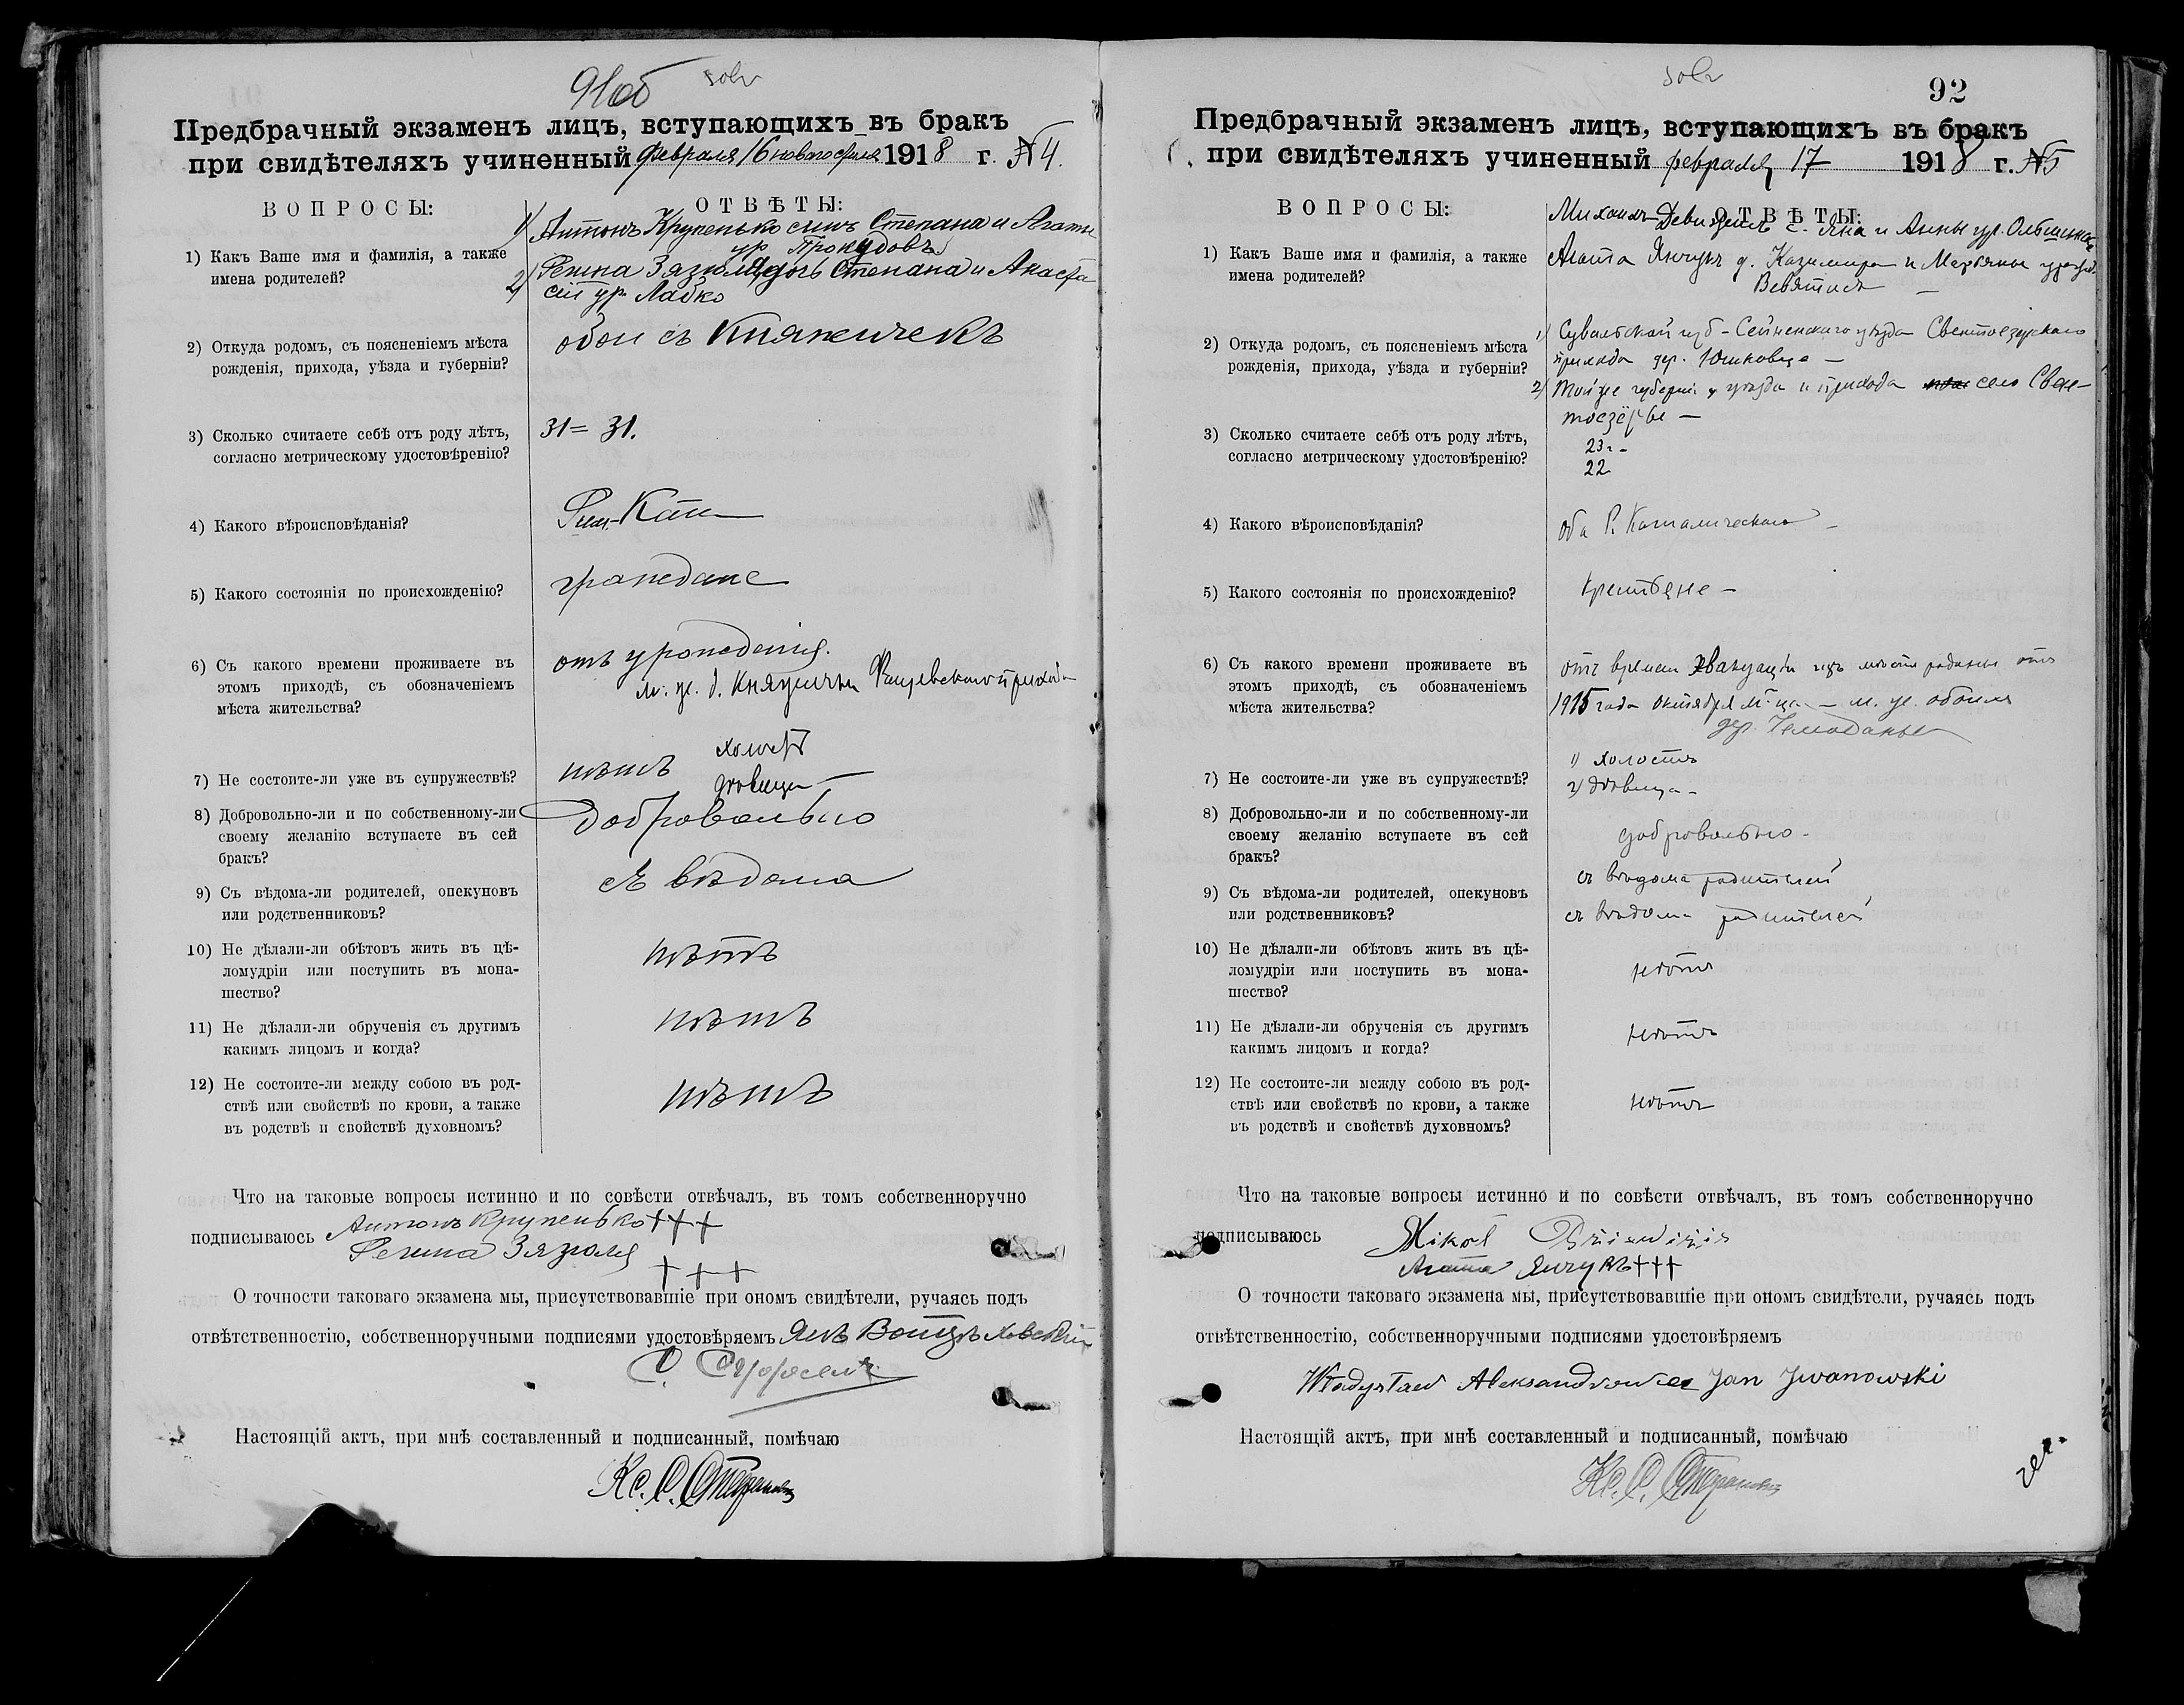 91об solv
Предбрачный экзаменъ лицъ, вступающихъ въ бракъ
при свидѣтеляхъ учиненный февраля 16 новаго стиля 1918 г. №4.
ВОПРОСЫ: ОТВѢТЫ:
1) Какъ Ваше имя и фамилія, а также
имена родителей?
1) Антонъ Крупенько сынъ Степана и Агаты
ур. Прокудовъ
2) Регина Зязюля дочь Степана и Анаста
сіи ур. Лабко
2) Откуда родомъ, съ поясненіемъ мѣста
рожденія, прихода, уѣзда и губерніи?
обои съ Княжичекъ
3) Сколько считаете себѣ отъ роду лѣтъ,
согласно метрическому удостовѣренію?
31 = 31.
4) Какого вѣроисповѣданія?
Рим-Кат
5) Какого состоянія по происхожденію?
граждане
6) Съ какого времени проживаете въ
этомъ приходѣ, съ обозначеніемъ
мѣста жительства?
отъ урожденія.
м. ж. д. Княжички прихода
7) Не состоите-ли уже въ супружествѣ?
нѣтъ холостъ
дѣвица
8) Добровольно-ли и по собственному-ли
своему желанію вступаете въ сей
бракъ?
добровольно
9) Съ вѣдома-ли родителей, опекуновъ
или родственниковъ?
съ вѣдома
10) Не дѣлали-ли обѣтовъ жить въ цѣ-
ломудріи или поступить въ мона-
шество?
нѣтъ
11) Не дѣлали-ли обрученія съ другимъ
какимъ лицомъ и когда?
нѣтъ
12) Не состоите-ли между собою въ род-
ствѣ или свойствѣ по крови, а также
въ родствѣ и свойствѣ духовномъ?
нѣтъ
Что на таковые вопросы истинно и по совѣсти отвѣчалъ, въ томъ собственноручно
подписываюсь Антонъ Крупенько +++
Регина Зязюля
+++
О точности таковаго экзамена мы, присутствовавшіе при ономъ свидѣтели, ручаясь подъ
отвѣтственностію, собственноручными подписями удостовѣряемъ Янъ
Настоящій актъ, при мнѣ составленный и подписанный, помѣчаю
Кс. С.
solv 92
Предбрачный экзаменъ лицъ, вступающихъ въ бракъ
при свидѣтеляхъ учиненный февраля 17 1918 г. №5
ВОПРОСЫ: ОТВѢТЫ:
1) Какъ Ваше имя и фамилія, а также
имена родителей?
Михаилъ с. Яна и Анны ур.
Агата Янчукъ д. Казимира и Марьяны урожд.
2) Откуда родомъ, съ поясненіемъ мѣста
рожденія, прихода, уѣзда и губерніи?
1) Сувалкской губ - Сейненскаго уѣзда Свентоезерскаго
прихода дер. Юшковце —
2) Той же губерніи уѣзда и прихода село Свен-
тоезёрье —
3) Сколько считаете себѣ отъ роду лѣтъ,
согласно метрическому удостовѣренію?
23 -
22
4) Какого вѣроисповѣданія?
оба Р. Католическаго —
5) Какого состоянія по происхожденію?
Крестьяне —
6) Съ какого времени проживаете въ
этомъ приходѣ, съ обозначеніемъ
мѣста жительства?
отъ времени эвакуаціи изъ мѣста родины отъ
1915 года октября м-ца — м. ж. обоихъ
дер. Чемоданы
7) Не состоите-ли уже въ супружествѣ?
1) холостъ
2) дѣвица -
8) Добровольно-ли и по собственному-ли
своему желанію вступаете въ сей
бракъ?
добровольно -
9) Съ вѣдома-ли родителей, опекуновъ
или родственниковъ?
съ вѣдома родителей
съ вѣдома родителей
10) Не дѣлали-ли обѣтовъ жить въ цѣ-
ломудріи или поступить въ мона-
шество?
нѣтъ
11) Не дѣлали-ли обрученія съ другимъ
какимъ лицомъ и когда?
нѣтъ
12) Не состоите-ли между собою въ род-
ствѣ или свойствѣ по крови, а также
въ родствѣ и свойствѣ духовномъ?
нѣтъ
Что на таковые вопросы истинно и по совѣсти отвѣчалъ, въ томъ собственноручно
подписываюсь
Агата Янчукъ +++
О точности таковаго экзамена мы, присутствовавшіе при ономъ свидѣтели, ручаясь подъ
отвѣтственностію, собственноручными подписями удостовѣряемъ
Władysław Aleksandrowicz Jan Iwanowski
Настоящій актъ, при мнѣ составленный и подписанный, помѣчаю
Кс. С.